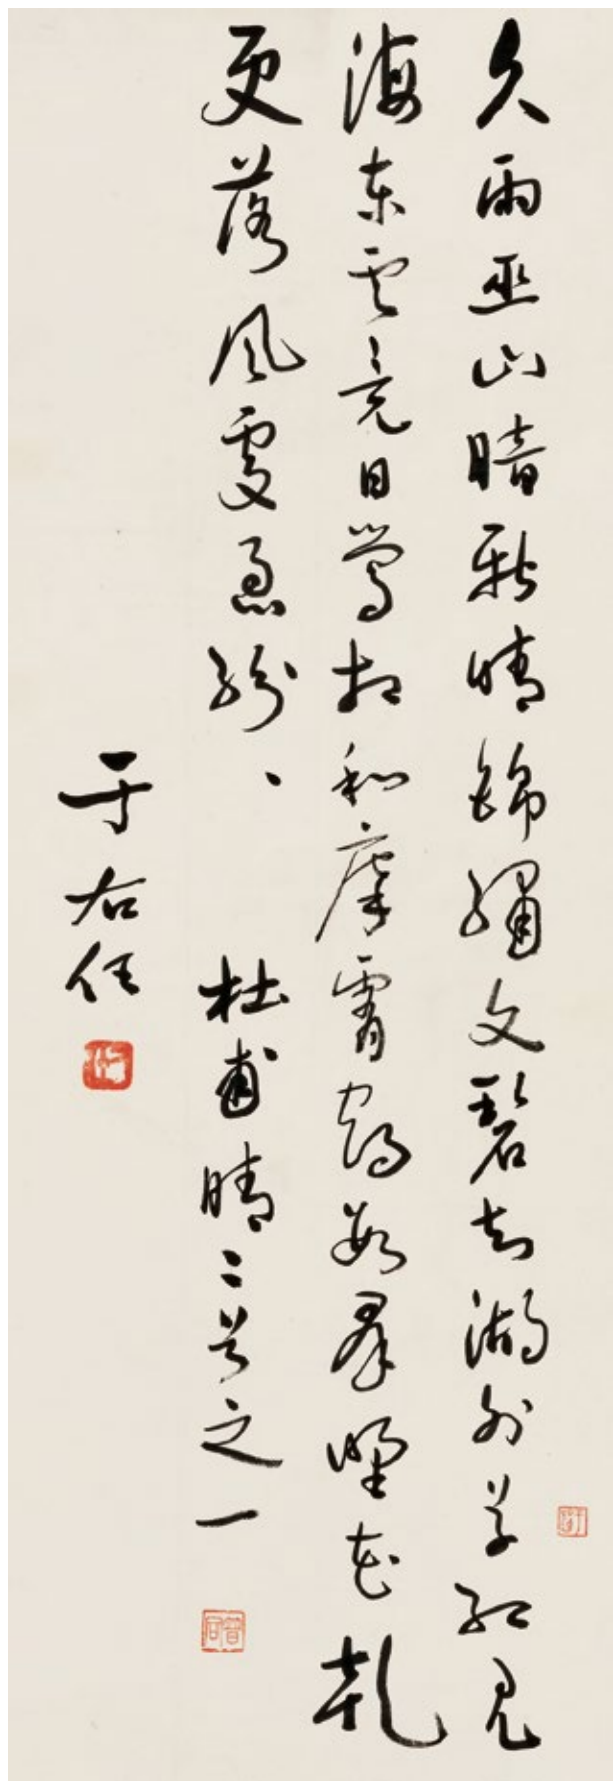 久雨巫山暗新晴錦繡文碧知湖外草紅見
海東雲竟日鶯相和摩霄鶴數羣野花乾
更落風處急紛、 杜甫晴二首之一
于右任